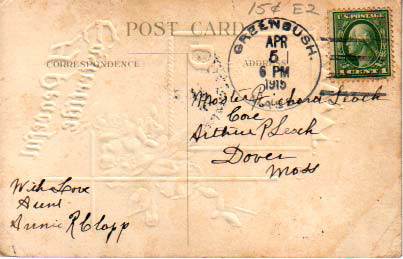 15¢ E2
POST CARD
CORRESPONDENCE
ADDRESS
GREENBUSH.
APR
5
6 PM
1915
MASS.
U.S. POSTAGE
1 CENT 1
Master Richard Leach
Care
Arthur P Leach
Dover
Mass
With Love
Aunt
Annie R Clapp